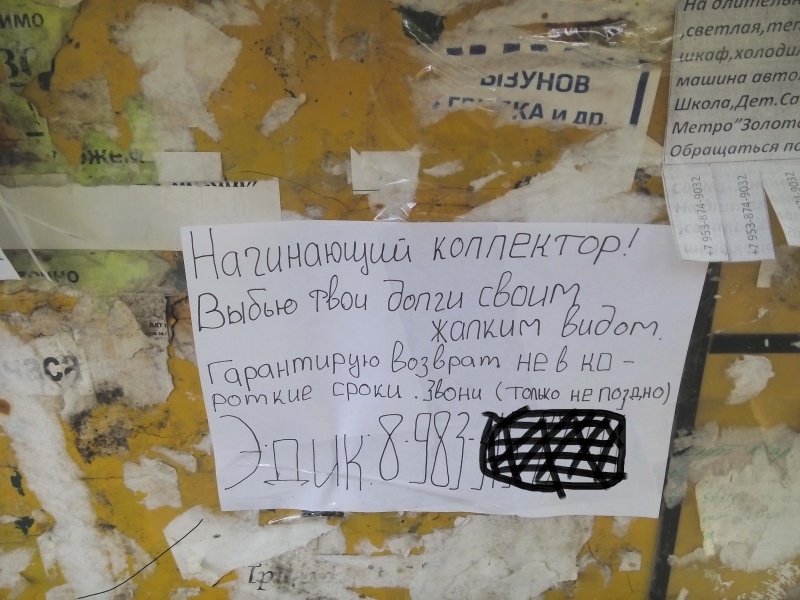 имо
ЫЗУНОВ
КА и др.
На длительн
,светлая,теп
шкаф,холоди
машина авто
Школа,Дет.Са
Метро"Золот
Обращаться по
+7 953-874-9032
+7 953-874-9032
Начинающий коллектор!
Выбью твои долги своим
жалким видом.
Гарантирую возврат не в ко-
роткие сроки. Звони (только не поздно)
Эдик 8-983-
часа
Гр